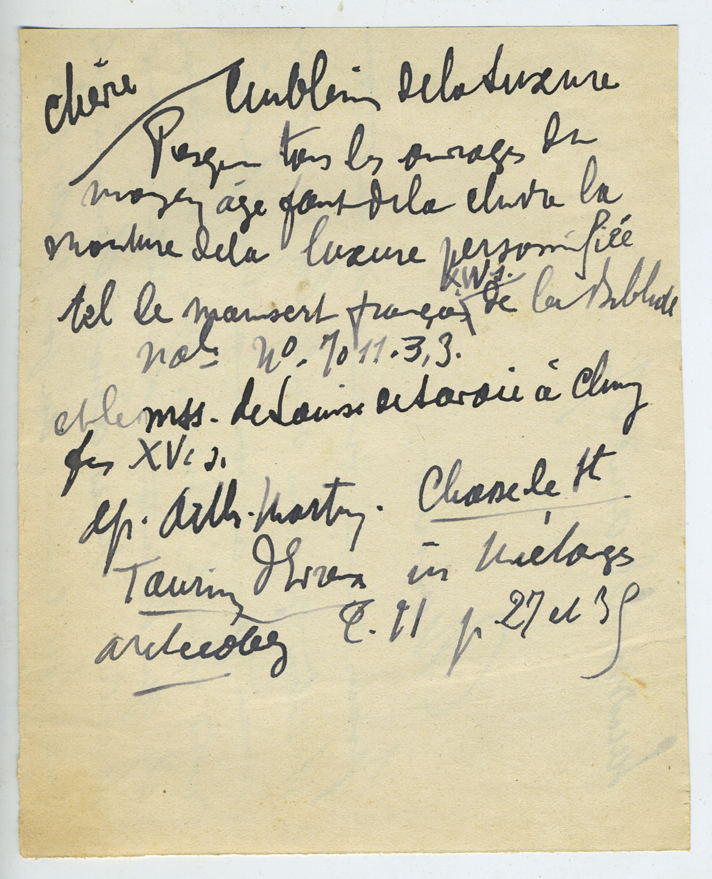 chèvre Emblème de la Luxure
Presque tous les ouvrages du
moyen âge font de la chèvre la
monture de la luxure personnifiée
tel le manuscrit français XVe s. de la Biblioth
natle No. 7011.3,3.
et le mss. de Louise de Savoie à Cluny
fin XVe s.
ap. Arth. Martin. Chasse de St
Taurin d'Evreux in Mélanges
archéolog T. II p 27 et 35